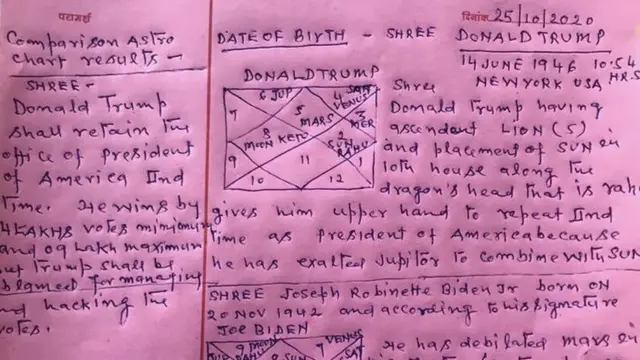 परामर्श
दिनांक 25/10/2020
Comparison Astro
Chart results -
SHREE -
Donald Trump
shall retain the
office of president
of America IInd
time. He wins by
4 LAKHS votes minimum
and 09 Lakh maximum
but Trump shall be
blamed for managing
and hacking the
votes.
DATE OF BIYTH - SHREE DONALD TRUMP
14 JUNE 1946 10.54 HRS.
NEWYORK USA
DONALD TRUMP
6 JUP
4 SAT
VENUS
7
5
MARS
3
MER
8
MOON KETU
2
SUN
RAHU
9
11
1
10
12
Shree
Donald Trump having
ascendent LION (5)
and placement of SUN in
10th house along the
dragon's head that is rahu
gives him upper hand to repeat IInd
time as president of America because
he has exalted Jupitor to combine with SUN
SHREE Joseph Robinette Biden Jr born on
20 NOV 1942 and according to his signature
JOE BIDEN
9 MOON
7 VENUS
RAHU
8 SUN
SAT
He has debilated mars in